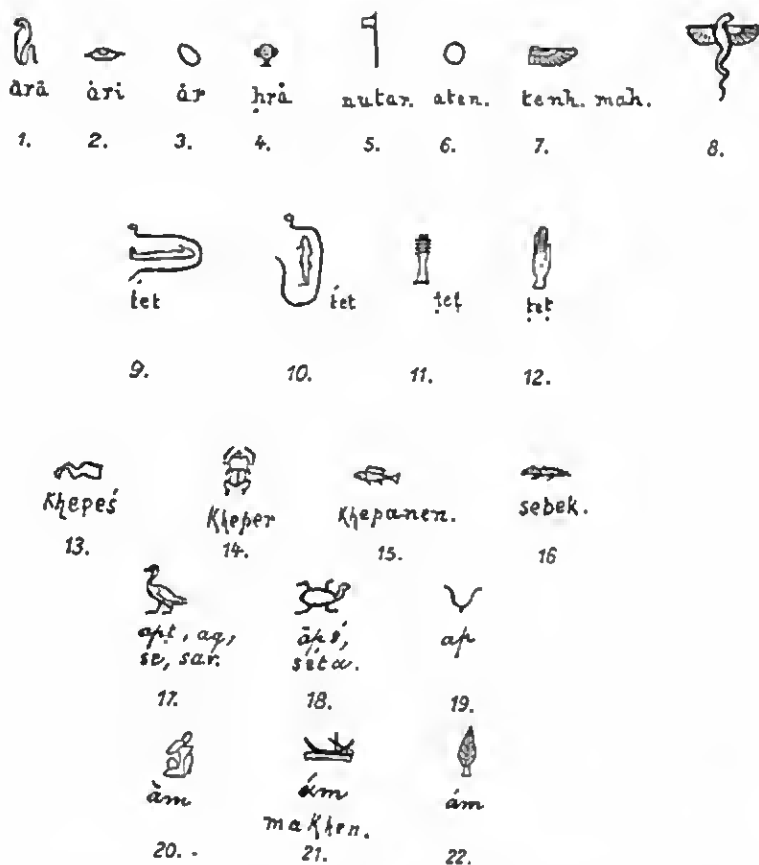 ārā ȧri ȧr ḥrȧ nutar. aten. tenh. mah.
1. 2. 3. 4. 5. 6. 7. 8.
tet tet ṭeṭ ṭeṭ
9. 10. 11. 12.
Kḥepeś Kḥeper Kḥepanen. sebek.
13. 14. 15. 16
apṭ, aq, āpś, ap
se, sar. śeta.
17. 18. 19.
ȧm ȧm
maKḥen.
20. 21. 22.